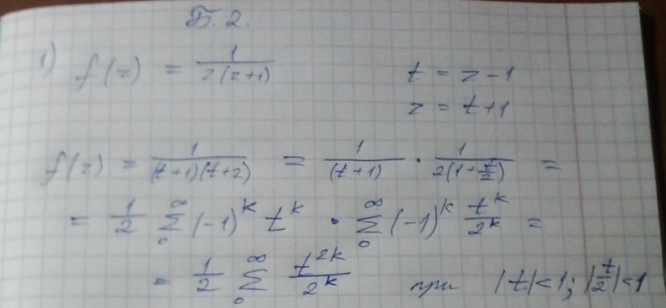 Б. 2.
1) f(z) = 1/(z(z+1)) t = z-1
z = t+1
f(z) = 1/((t+1)(t+2)) = 1/(t+1) · 1/(2(1+t/2)) =
= 1/2 ∑₀^∞ (-1)^k t^k · ∑₀^∞ (-1)^k t^k/2^k =
= 1/2 ∑₀^∞ t^{2k}/2^k при |t|<1; |t/2|<1